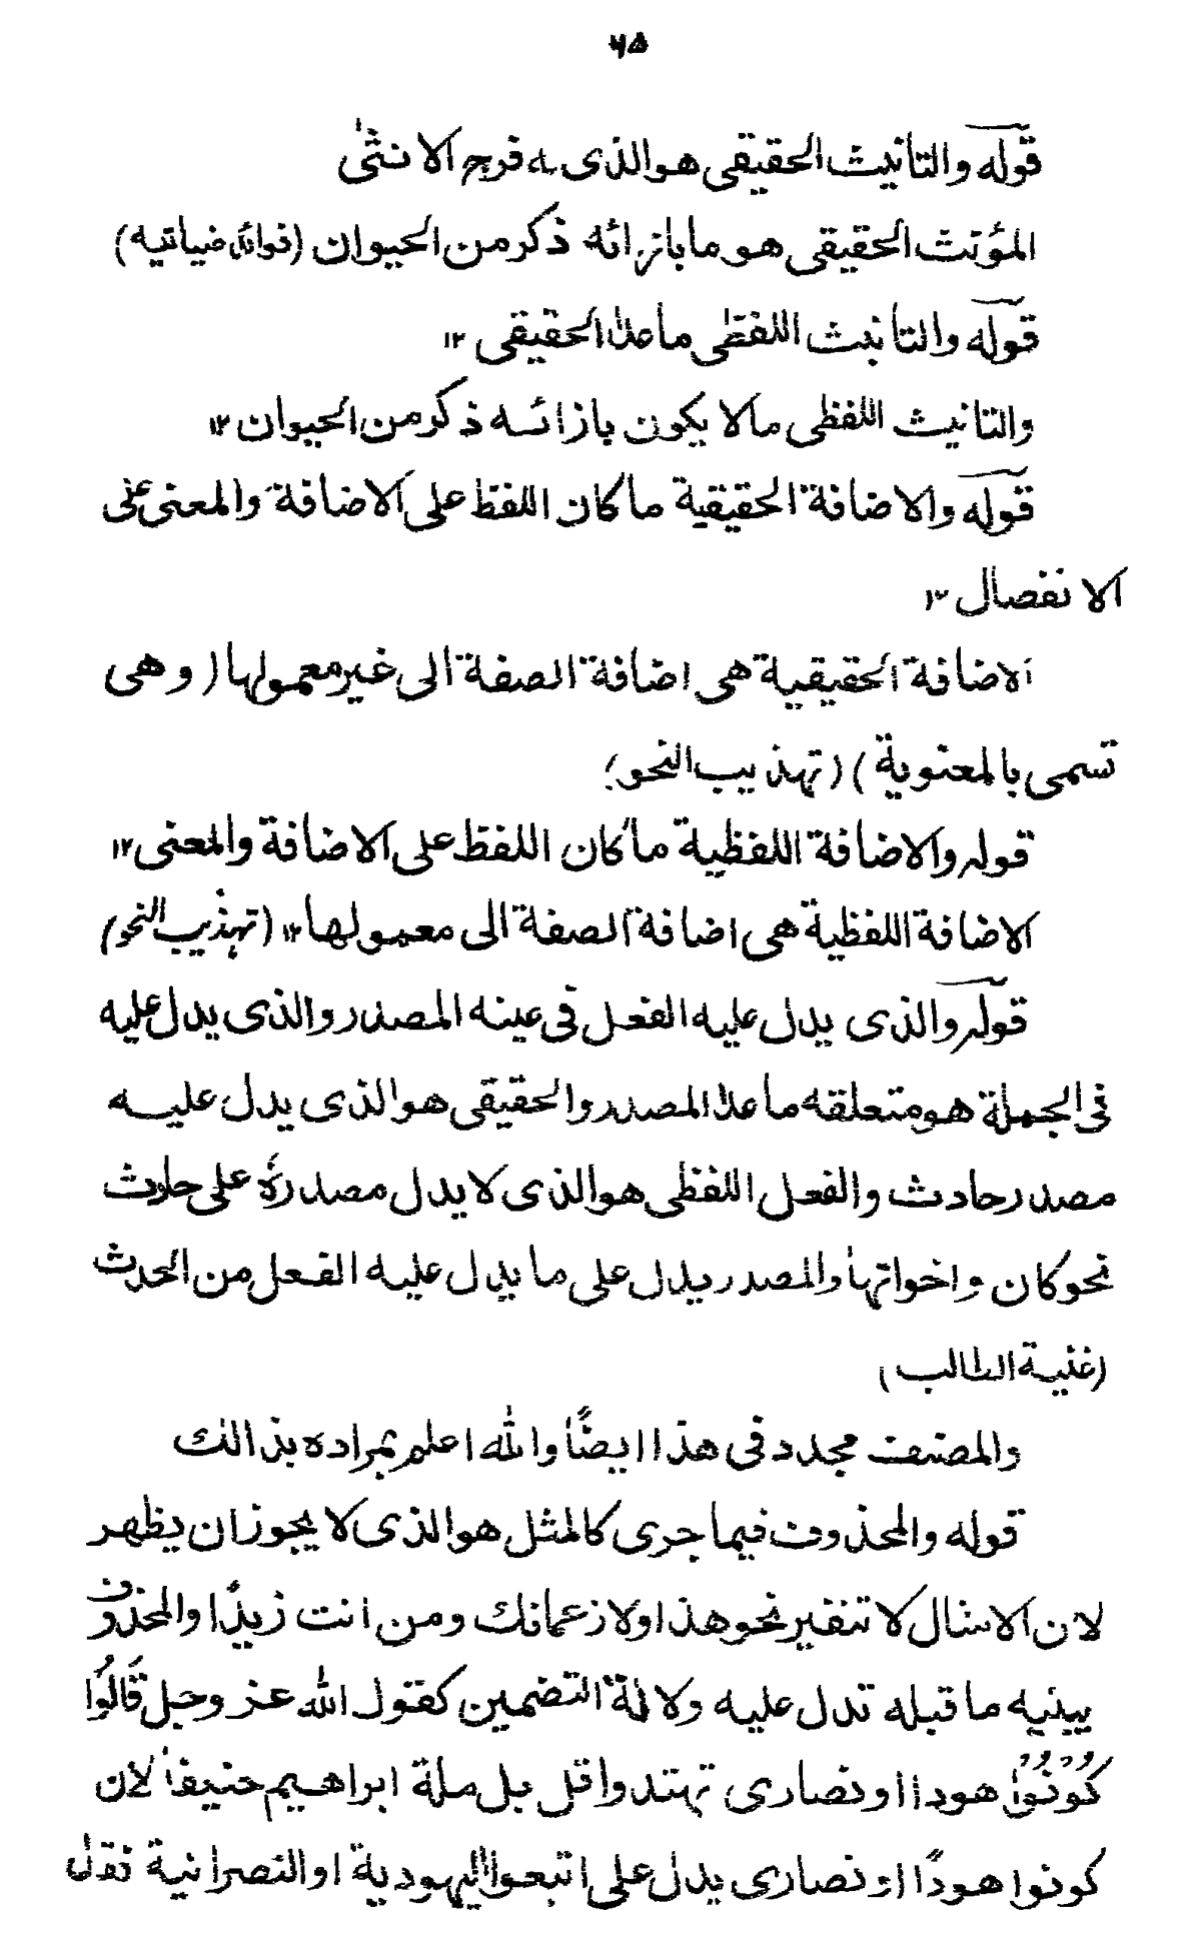 ۷۵
قوله والتانيث الحقيقى هو الذى له فرج الانثىٰ
المؤنث الحقيقى هو ما بازائه ذكر من الحيوان (فوائد ضيائيه)
قوله والتانيث اللفظى ما عدا الحقيقى ۱۲
والتانيث اللفظى مالا يكون بازائسه ذكر من الحيوان ۱۲
قوله والاضافة الحقيقية ما كان اللفظ على الاضافة والمعنى على
الانفصال ۱۲
الاضافة الحقيقية هى اضافة الصفة الى غير معمولها ( وهى
تسمى بالمعنوية ) (تهذيب النحو)
قوله والاضافة اللفظية ما كان اللفظ على الاضافة والمعنى ۱۲
الاضافة اللفظية هى اضافة الصفة الى معمولها ۱۲ (تهذيب النحو)
قوله والذى يدل عليه الفعل فى عينه المصدر والذى يدل عليه
فى الجملة هو متعلقه ما عدا المصدر والحقيقى هو الذى يدل عليه
مصدر حادث والفعل اللفظى هو الذى لا يدل مصدره على حادث
نحو كان واخواتها والمصدر يدل على ما يدل عليه الفعل من الحدث
(غنية الطالب)
والمصنف مجدد فى هذا ايضًا والله اعلم بمراده بذالك
قوله والمحذوف فيما جرى كالمثل هو الذى لا يجوز ان يظهر
لان الامثال لا تتغير نحو هذا ولا زعماتك ومن انت زيدًا والمحذوف
يبنيه ما قبله تدل عليه ولالة التضمين كقول الله عز وجل قَالُوا
كُوْنُوْا هودا اونصارى تهتدوا قل بل ملة ابراهيم حنيفا لان
كونوا هودًا او نصارى يدل على اتبعوا اليهودية او النصرانية نقل